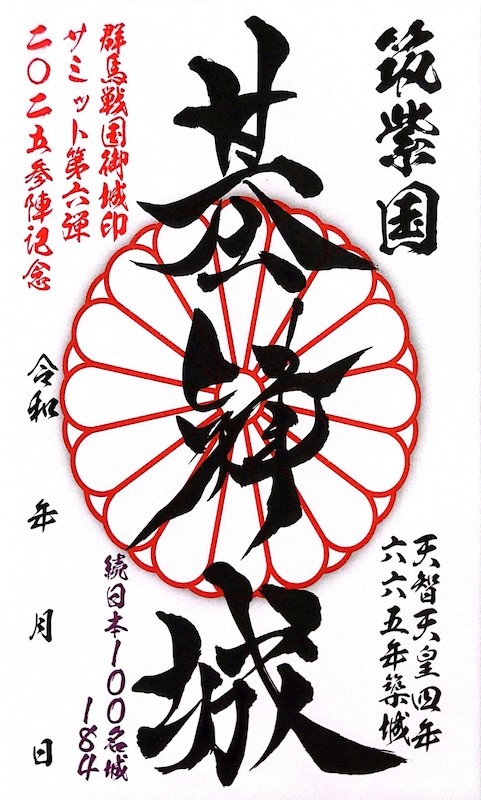 筑紫国
天智天皇四年
六六五年築城
基肄城
続日本100名城
184
群馬戦国御城印
サミット第六弾
二〇二五参陣記念
令和 年 月 日